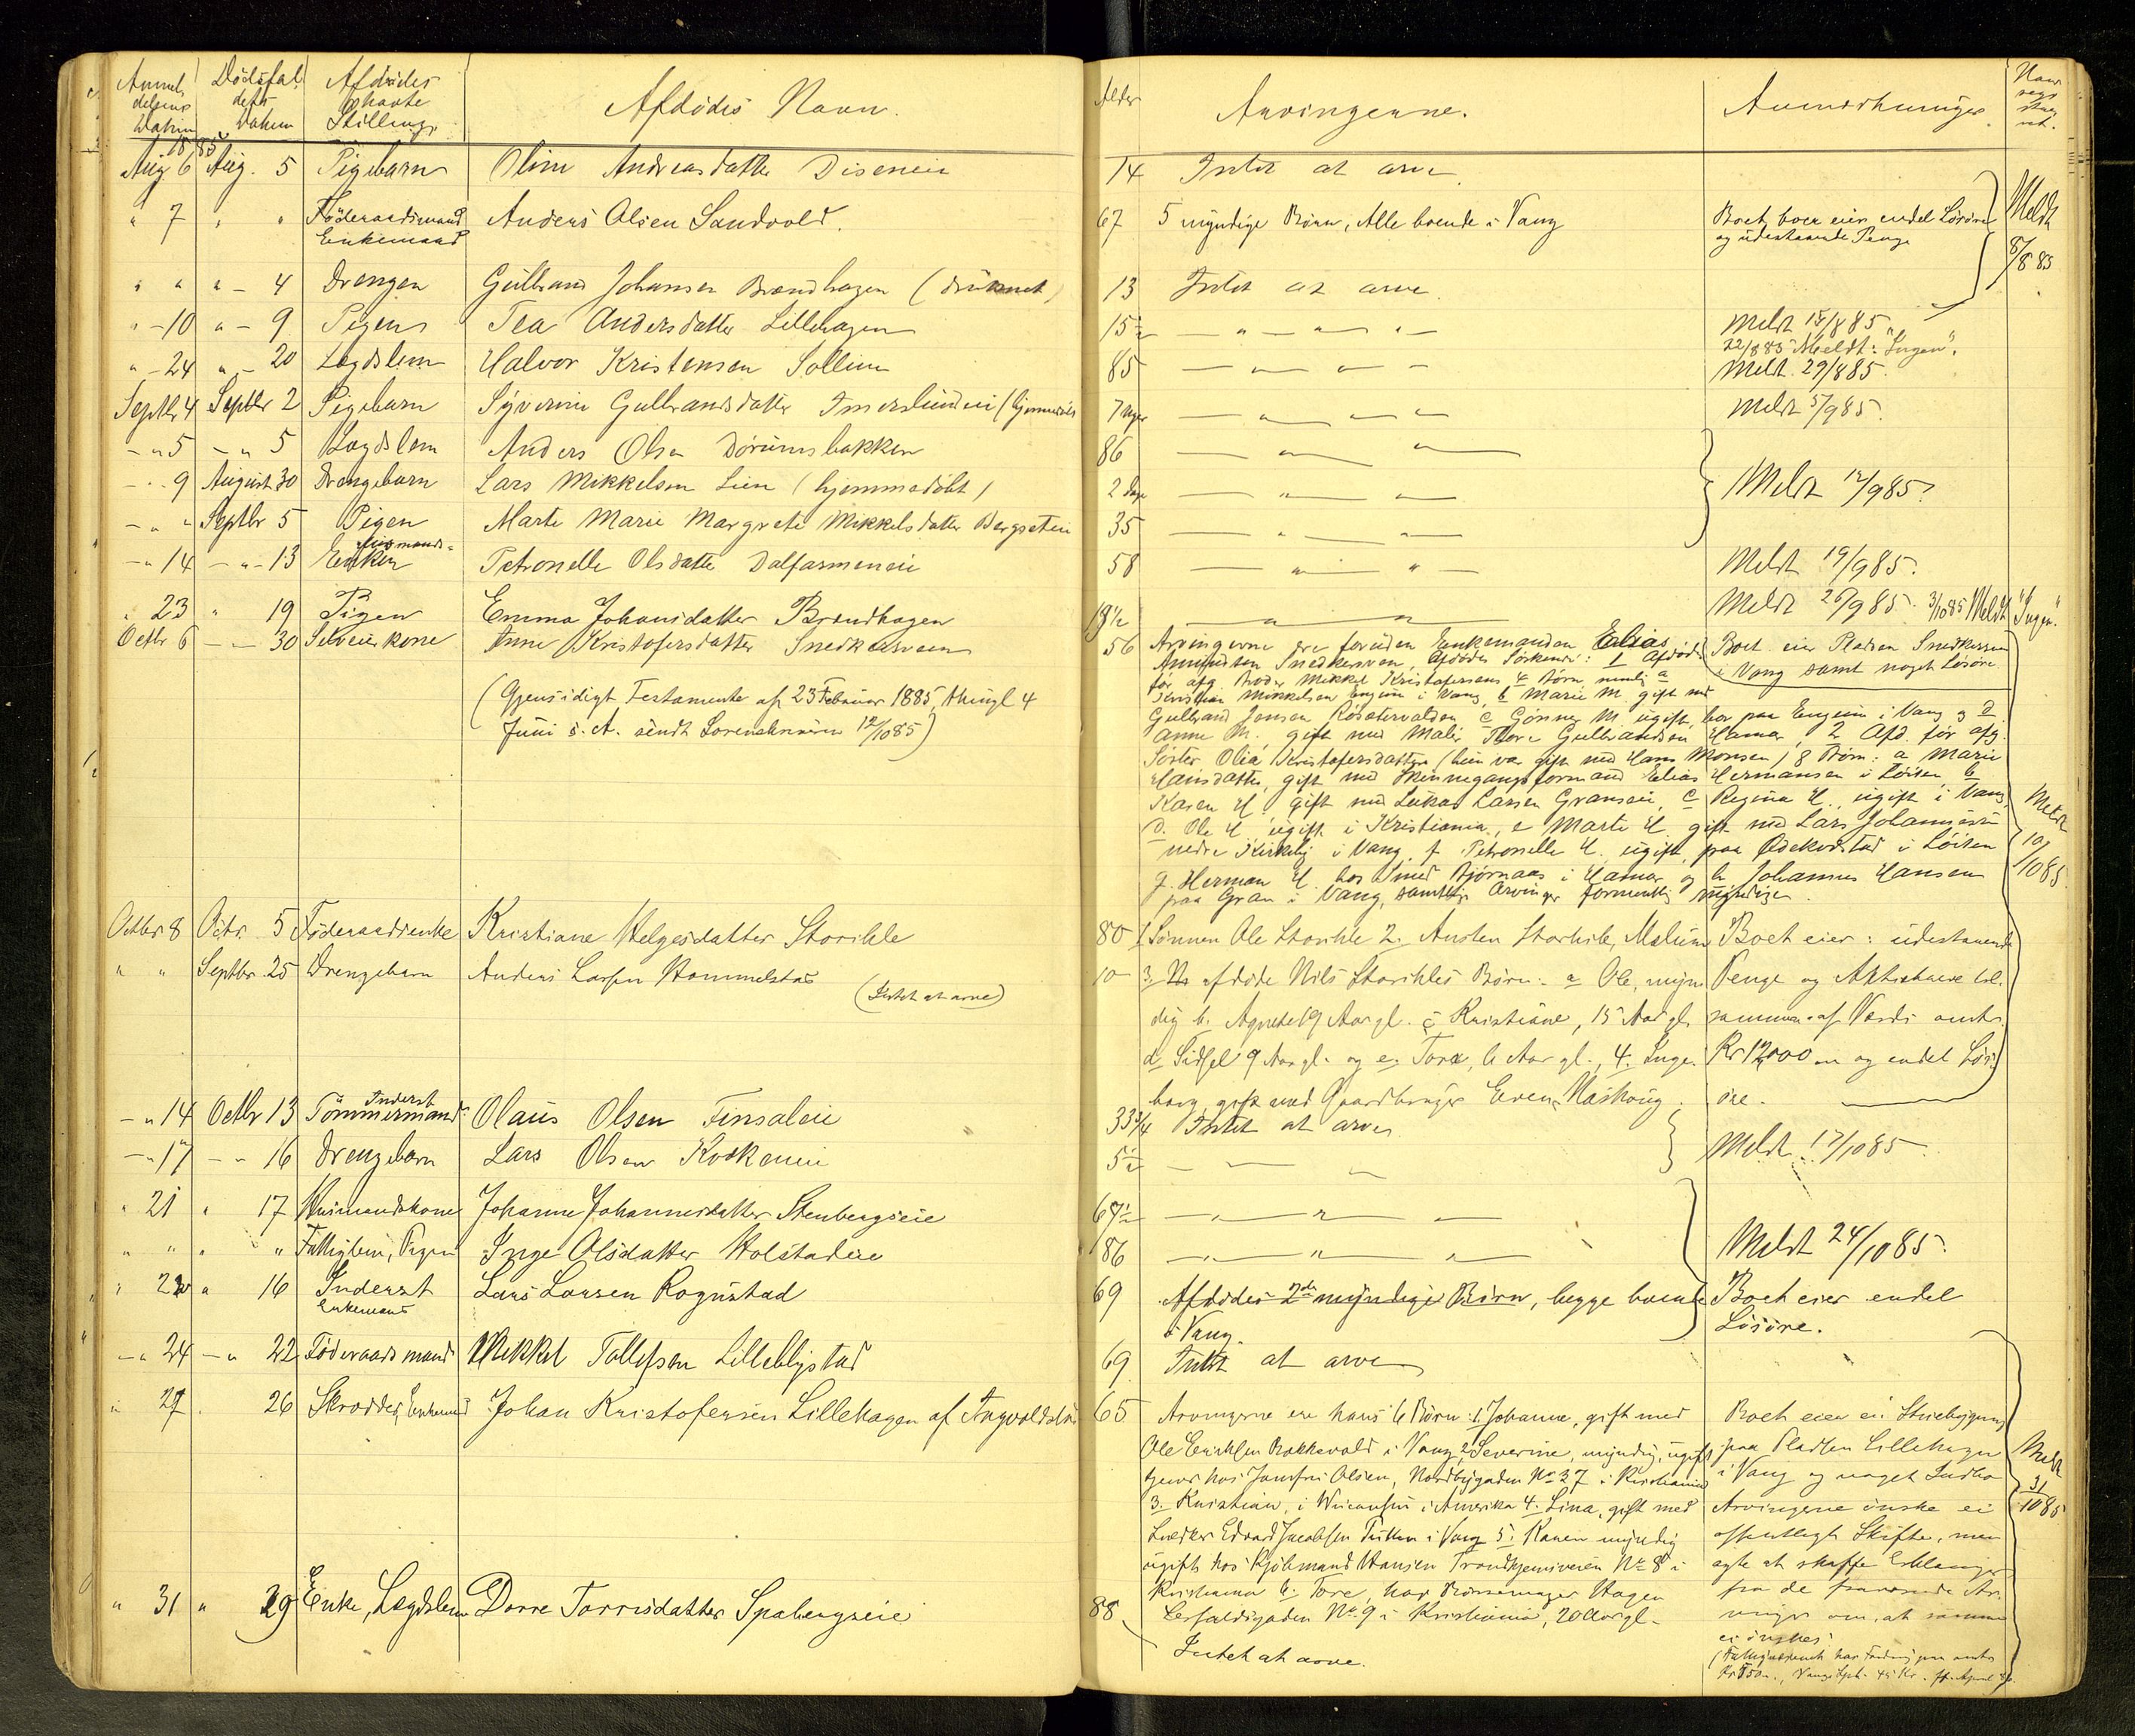 Anmeldelsens Datum
Dødsfaldets Datum
Afdødes havte Stilling
Afdødes Navn.
1885
Aug 6 Aug. 5 Pigebarn Oline Andreasdatter Diseneie
" 7 " " Føderaadsmand Enkemand Anders Olsen Sandvold.
" " " - 4 Drengen Gulbrand Johansen Brændhagen (druknet)
" - 10 " - 9 Pigen Tea Andersdatter Lillehagen
" - 24 " - 20 Lægdslem Halvor Kristensen Sollien
Septbr 4 Septbr 2 Pigebarn Syverine Gulbrandsdatter Imerslundeie (hjemmedøbt
- " 5 - " 5 Lægdslem Anders Olsen Dørumsbakken
- " 9 August 30 Drengebarn Lars Mikkelsen Lien (hjemmedøbt)
- " " Septbr 5 Pigen Marte Marie Margrete Mikkelsdatter Bergseteie
- " 14 - " - 13 Husmands-Enken Petronelle Olsdatter Dalfarmeneie
" 23 " 19 Pigen Emma Johansdatter Brændhagen
Octbr 6 - " - 30 Selveierkone Anne Kristofersdatter Snedkersveen
(Gjensidigt Testamente af 23 Februar 1885, thingl 4
Juni s. A. sendt Sorenskriveren 12/10 85)
Octbr 8 Octr. 5 Føderaadsenke Kristiane Helgesdatter Storihle
" " Septbr. 25 Drengebarn Anders Larsen Hommelstad
(Intet at arve)
- " 14 Octbr 13 Inderst Tømmermand Olaus Olsen Finsaleie
- " 17 - " 16 Drengebarn Lars Olsen Kvækeneie
" 21 " 17 Husmandskone Johanne Johannesdatter Stenbergseie
" " " " Fattiglem, Pigen Inge Olsdatter Holstadeie
" 22 " 16 Inderst Enkemand Lars Larsen Rognstad
- " 24 - " 22 Føderaadsmand Mikkel Tollefsen Lilleblystad
" 27 " 26 Skrædder, Enkemand Johan Kristofersen Lillehagen af
" 31 " 29 Enke, Lægdslem Dorre Torrisdatter Spabergseie
Alder
Arvingerne.
Anmærkninger.
14 Intet at arve.
67 5 myndige Børn, Alle boende i Vang
Boet eier endel Løsøre
og udestaaende Penge
Meldt
8/8 85
13 Intet at arve.
15 1/2 — " — " — " —
Meldt 15/8 85
22/8 85 Meldt: "Ingen".
85 — " — " —
Meldt 29/8 85.
7 Uger — " — " —
Meldt 5/9 85.
86 — " — " —
2 Dage — " — " —
Meldt 12/9 85.
35 — " — " —
58 — " — " —
Meldt 19/9 85.
19 1/2 — " — " —
Meldt 26/9 85. 3/10 85 Meldt "Ingen".
56 Arvingerne ere foruden Enkemanden Elias
Amundsen Snedkersveen, Afdødes Søskende: 1 Afdøde
før afg. Broder Mikkel Kristofersens 4 Børn nemlig a
Kristian Mikkelsen Engeien i Vang, b Marie M. gift med
Gulbrand Jensen Kosetervolden c Gunner M. ugift, bor paa Engeien i Vang og d
Anne M. gift med Maler Thore Gulbrandsen Hamar, 2 Afd. før afg.
Søster Olia Kristofersdatter (hun var gift med Hans Monsen) 8 Børn: a Marie
Hansdatter, gift med Skinnegangsformand Elias Hermansen i Løiten b
Karen H. gift med Lukas Larsen Granseie, c Regina H. ugift i Vang,
d. Ole H. ugift i Kristiania, e Marte H. gift med Lars Johannesen
nedre Kirkelig i Vang, f Petronelle H. ugift, paa Ødekvidstad i Løiten
g. Herman H. hos Smed Bjørnaas i Hamar og h Johannes Hansen
paa Gran i Vang, samtlige Arvinger formentlig myndige.
Boet eier Pladsen Snedkersveen
i Vang samt noget Løsøre.
Meldt
10/10 85.
80 1. Sønnen Ole Storihle 2. Austen Storihle, Malum
10 3. afdøde Nils Storihles Børn: a Ole, myn
dig b. Agnete 19 Aar gl. c Kristiane, 15 Aar gl.
d Sidsel 9 Aar gl. og e. Tora, 6 Aar gl., 4. Inge
borg, gift med Gaardbruger Even Maskoug.
Boet eier: udestaaende
Penge og Aktiebreve til
sammen af Værdi omtr.
Kr 12000 og endel Løs
øre.
33 3/4 Intet at arve
5 1/2 — " —
Meldt 17/10 85
67 1/2 — " — " —
86 — " — " — " —
Meldt 24/10 85.
69 Afdødes 2de myndige Børn, begge boende
i Vang.
Boet eier endel
Løsøre.
69 Intet at arve
65 Arvingerne ere hans 6 Børn: 1. Johanne, gift med
Ole Eriksen Bakkevold i Vang, 2. Severine, myndig, ugift
tjener hos Jomfru Olsen, Nordbygaden No 37 i Kristiania
3. Kristian, i Wisconsin i Amerika 4. Lina, gift med
Snedker Edvard Jacobsen i Vang 5. Karen myndig
ugift hos Kjøbmand Hansen Trondhjemsveien No 8 i
Kristiania 6. Tore, hos Hagen
No 9 i Kristiania, 20 Aar gl.
Boet eier en Stuebygning
paa Pladsen Lillehagen
i Vang og noget Indbo
Arvingerne ønske ei
offentligt Skifte, men
agte at skaffe Erklæringer
fra de fraværende Ar
vinger om, at samme
ei ønskes.
Meldt
31/10 85
88 Intet at arve.